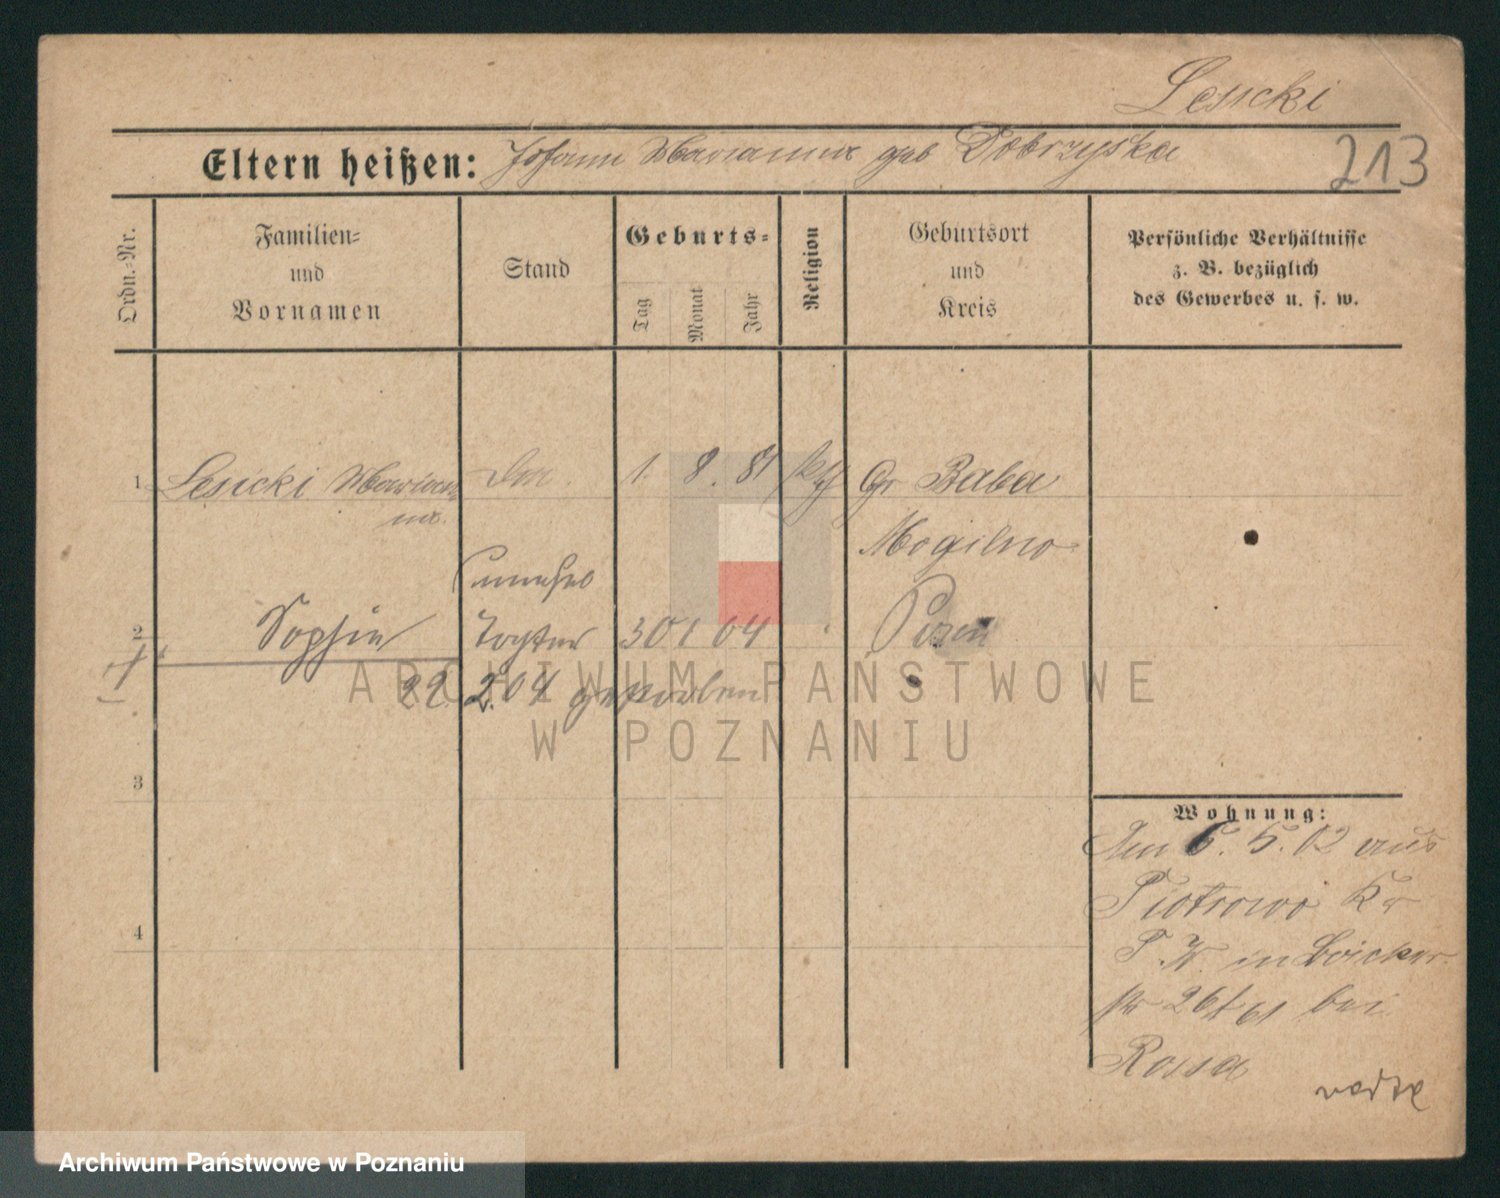 Lesicki
Eltern heißen: Johann Marianna geb Dobrzyska
213
Ordn.-Nr.
Familien-
und
Vornamen
Stand
Geburts-
Tag
Monat
Jahr
Religion
Geburtsort
und
Kreis
Persönliche Verhältnisse
z. B. bezüglich
des Gewerbes u. s. w.
1 Lesicki Marian 1. 8. 81 kth Gr Baba
na. Mogilno
unehel
2 Sophie Tochter 30 1 04 Posen
22. 2. 04 gestorben
ARCHIWUM PAŃSTWOWE
W POZNANIU
3
4
Wohnung:
Am 6. 5. 02 aus
Piotrowo Kr
P. W. in
str 26/61 bei
Rossa
Archiwum Państwowe w Poznaniu